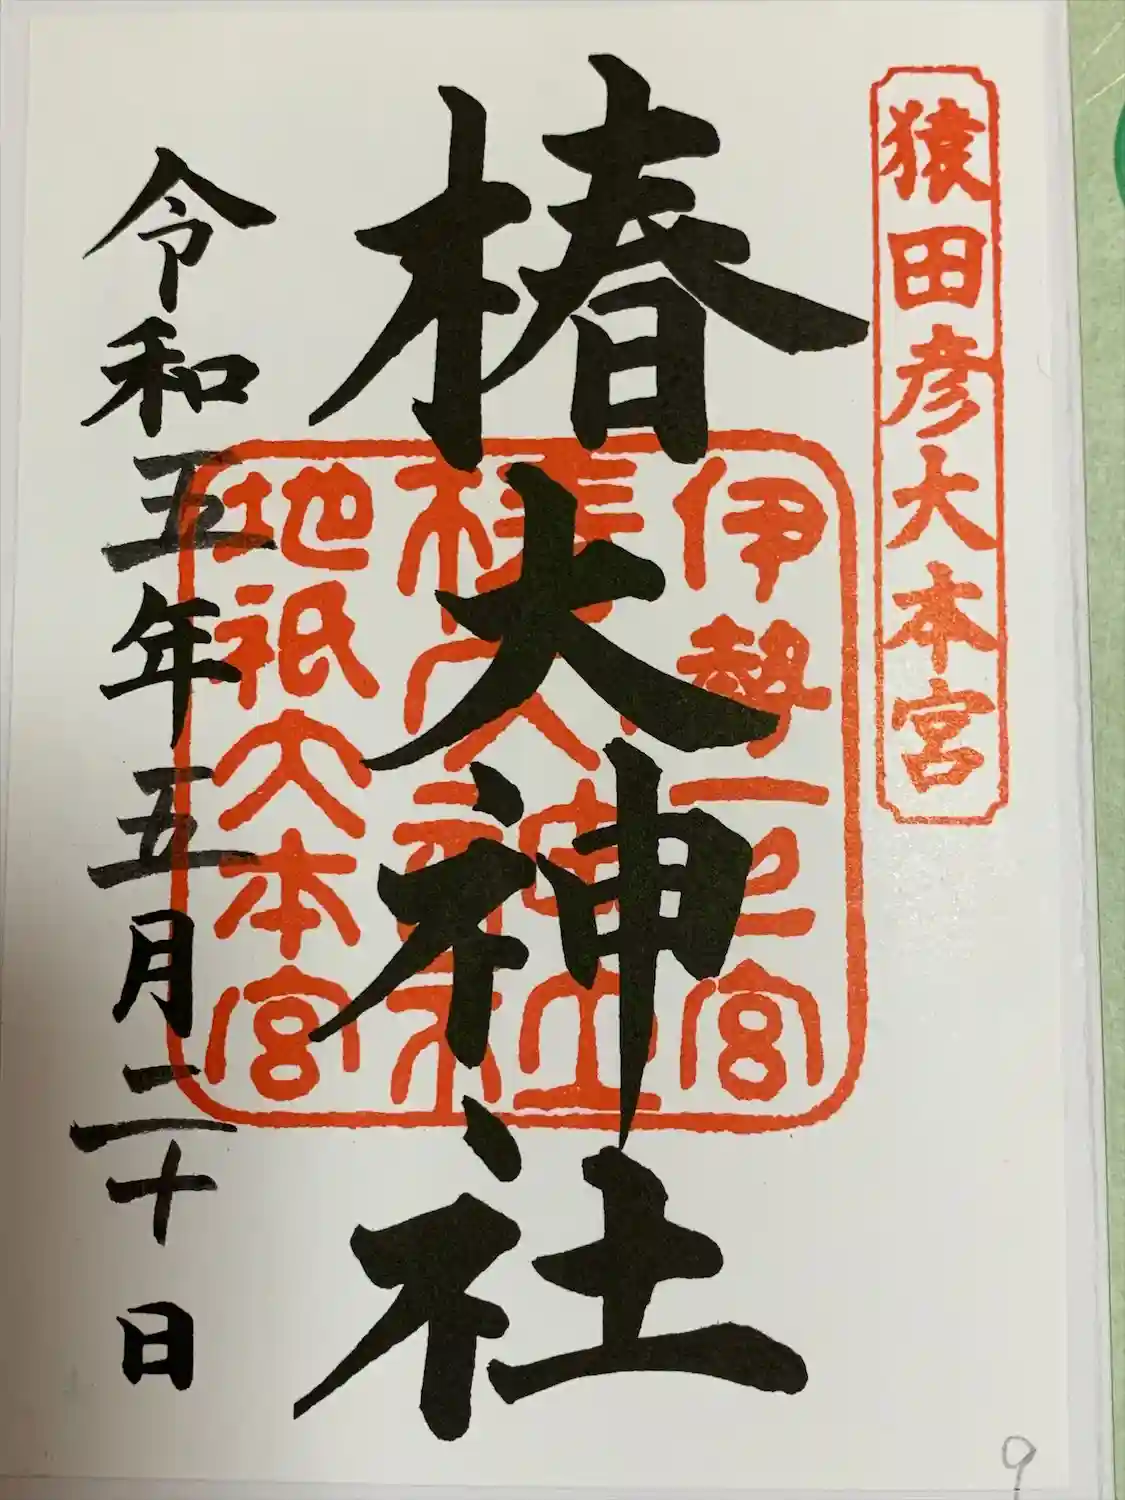 猿田彦大本宮
伊勢一之宮
椿大神社
椿大神社
地祇大本宮
令和五年五月二十日
9